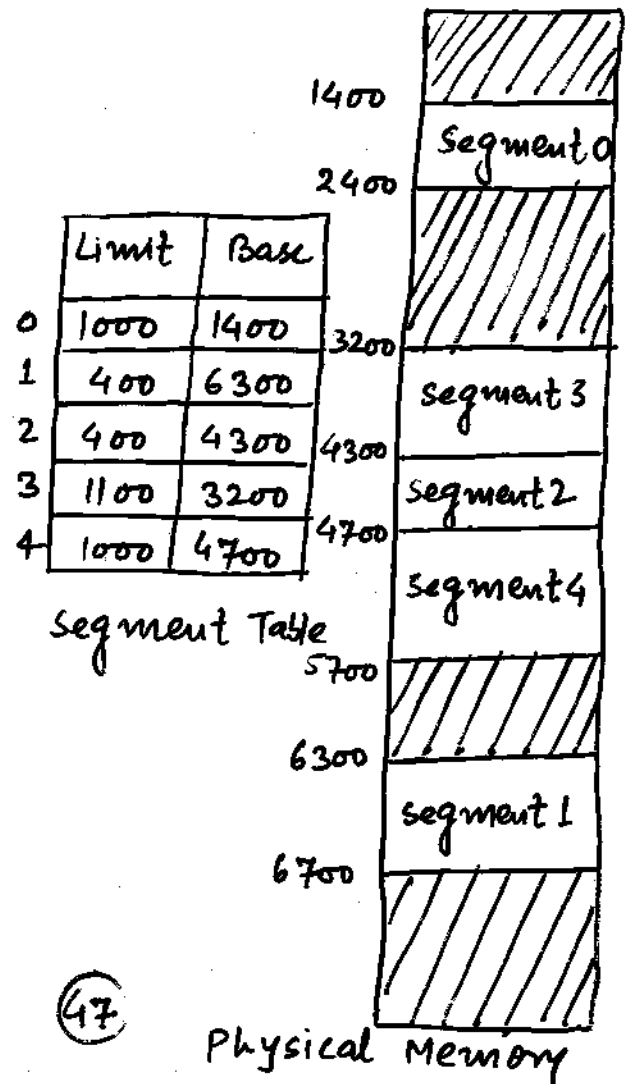 Limit Base
0 1000 1400
1 400 6300
2 400 4300
3 1100 3200
4 1000 4700
Segment Table
1400
Segment 0
2400
3200
Segment 3
4300
Segment 2
4700
Segment 4
5700
6300
Segment 1
6700
Physical Memory
47